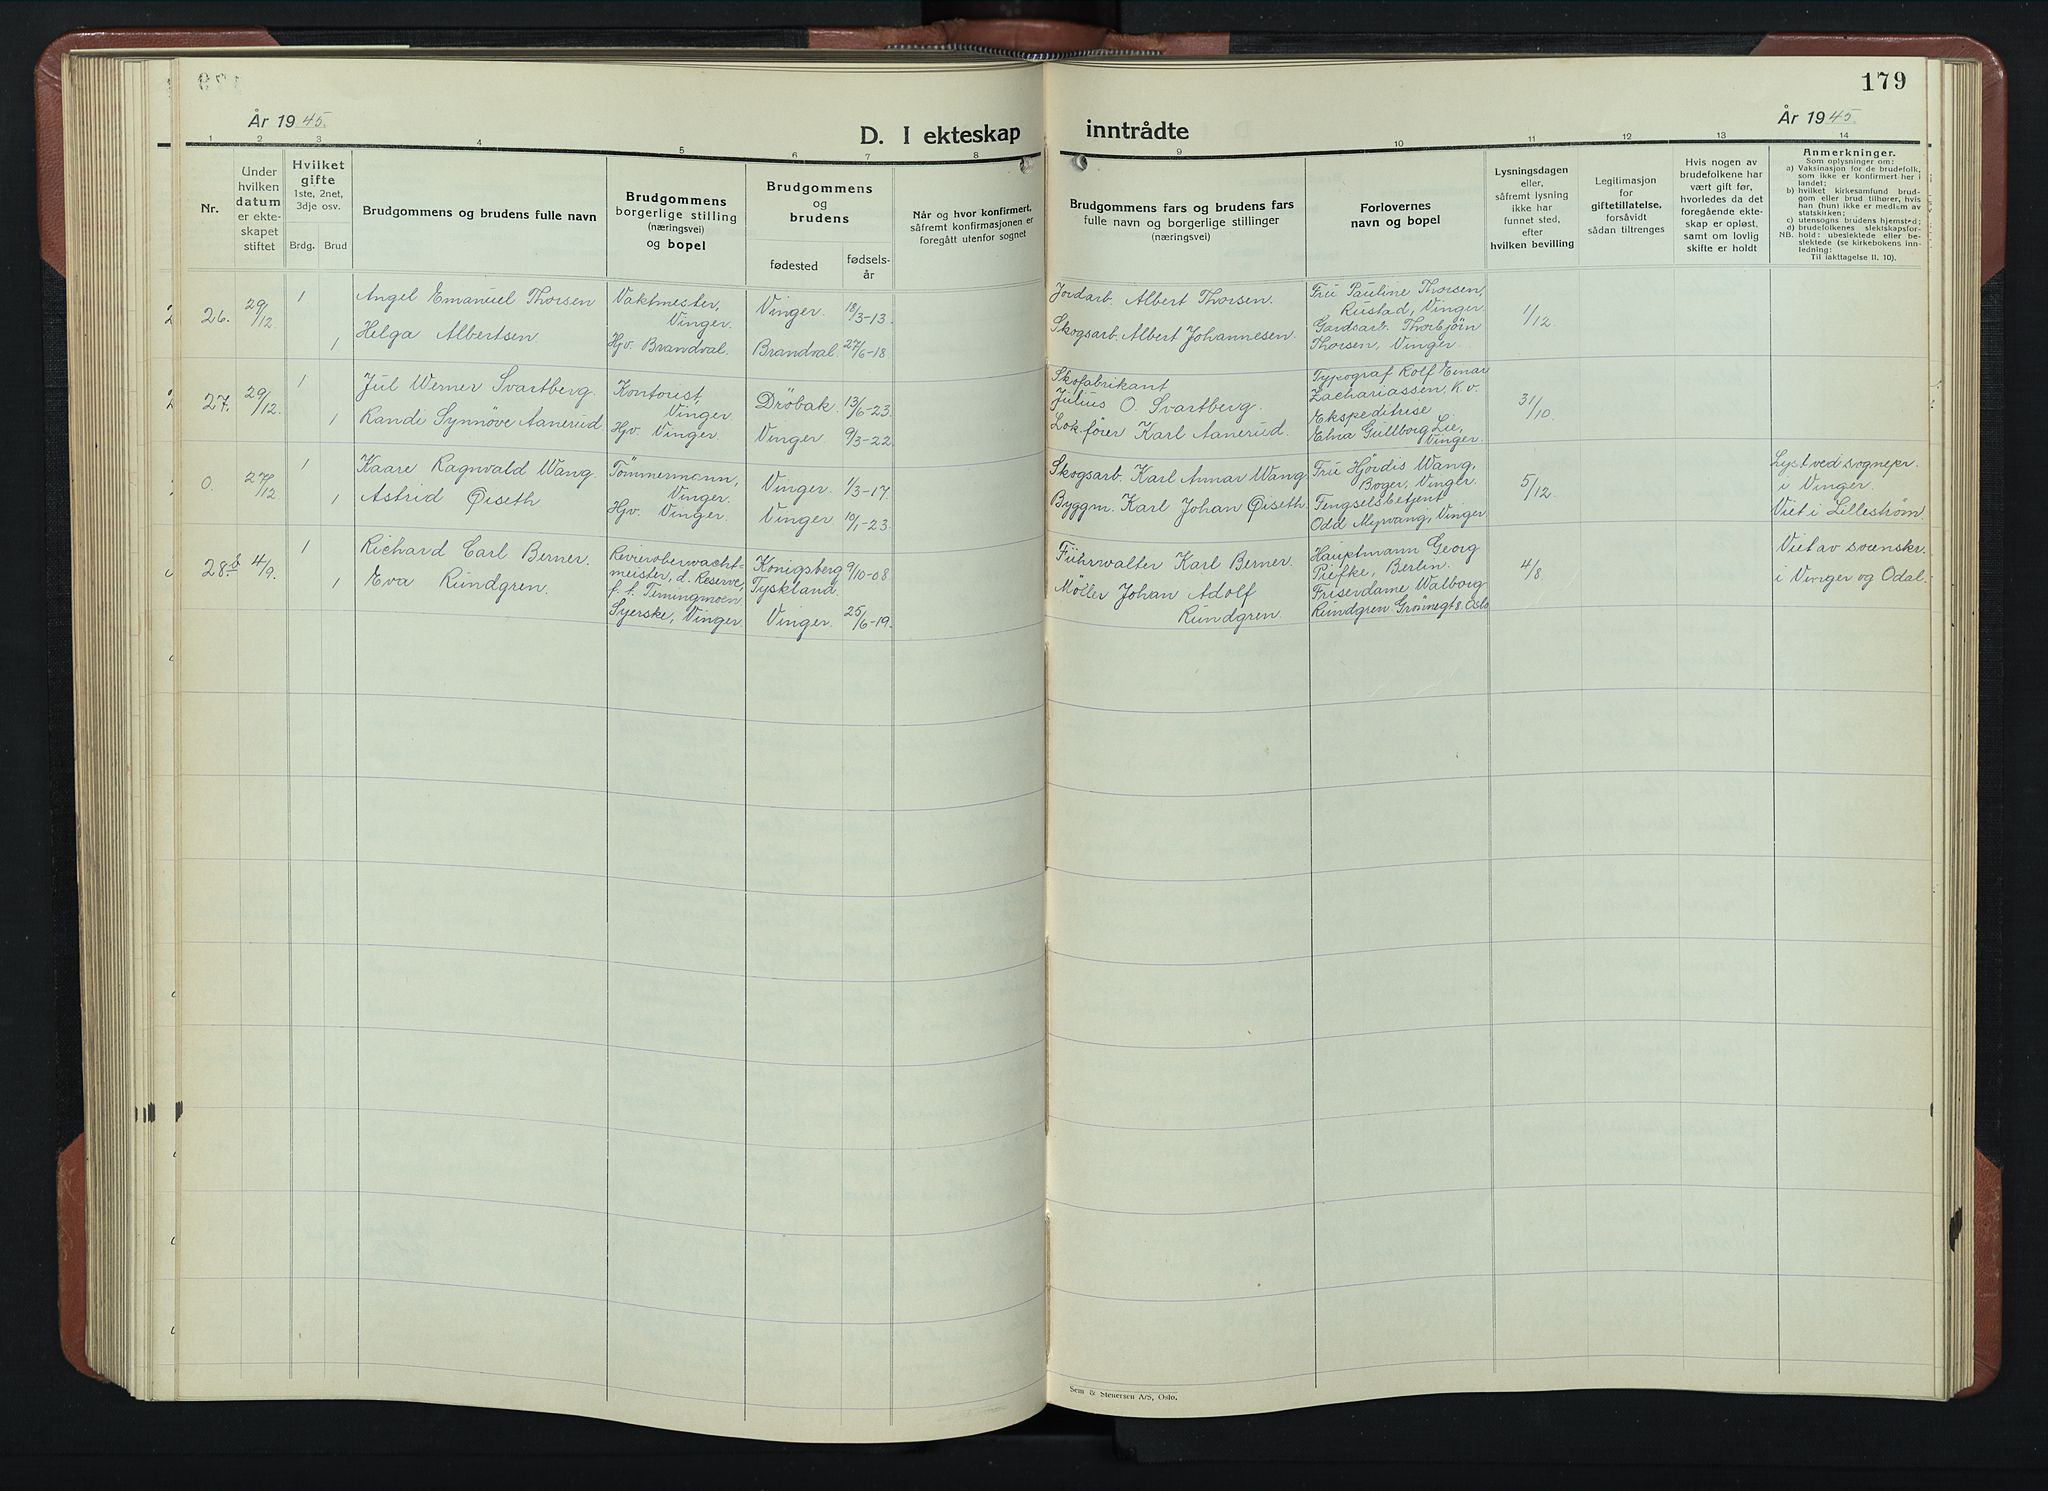 179
År 1945.
År 1945.
D. I ekteskap inntrådte
1 2 3 4 5 6 7 8 9 10 11 12 13 14
Nr.
Under
hvilken
datum
er ekte-
skapet
stiftet
Hvilket
gifte
1ste, 2net,
3dje osv.
Brdg. Brud
Brudgommens og brudens fulle navn
Brudgommens
borgerlige stilling
(næringsvei)
og bopel
Brudgommens
og
brudens
fødested
fødsels-
år
Når og hvor konfirmert,
såfremt konfirmasjonen er
foregått utenfor sognet
Brudgommens fars og brudens fars
fulle navn og borgerlige stillinger
(næringsvei)
Forlovernes
navn og bopel
Lysningsdagen
eller,
såfremt lysning
ikke har
funnet sted,
efter
hvilken bevilling
Legitimasjon
for
giftetillatelse,
forsåvidt
sådan tiltrenges
Hvis nogen av
brudefolkene har
vært gift før,
hvorledes da det
foregående ekte-
skap er opløst,
samt om lovlig
skifte er holdt
Anmerkninger.
Som oplysninger om:
a) Vaksinasjon for de brudefolk,
som ikke er konfirmert her i
landet;
b) hvilket kirkesamfund brud-
gom eller brud tilhører, hvis
han (hun) ikke er medlem av
statskirken;
c) utensogns brudens hjemsted;
d) brudefolkenes slektskapsfor-
hold: ubeslektede eller be-
NB. slektede (se kirkebokens inn-
ledning;
Til iakttagelse II. 10).
26. 29/12. 1
Angel Emanuel Thorsen
Helga Albertsen.
1
Vaktmester,
Vinger.
Hjv. Brandval.
Vinger. 18/3-13.
Brandval. 27/6-18
Jordarb. Albert Thorsen.
Skogsarb. Albert Johannesen.
Fru Pauline Thorsen,
Rustad, Vinger.
Gardsarb. Thorbjörn
Thorsen, Vinger.
1/12.
27. 29/12. 1
Jul Werner Svartberg.
Randi Synnöve Aanerud.
1
Kontorist,
Vinger.
Hjv. Vinger.
Dröbak. 13/6-23.
Vinger. 9/3-22.
Skofabrikant
Julius O. Svartberg.
Lok.förer Karl Aanerud.
Typograf Rolf Einar
Zachariassen, K.v.
Ekspeditrise
Edna Gullborg Lie,
Vinger.
31/10.
0. 27/12 1
Kaare Ragnvald Wang.
Astrid Øiseth
1
Tömmermann,
Vinger.
Hjv. Vinger.
Vinger. 1/3-17.
Vinger. 10/1-23.
Skogsarb. Karl Annar Wang.
Byggm. Karl Johan Øiseth.
Fru Hjördis Wang,
Boger, Vinger.
Fengselsbetjent
Odd Myrvang, Vinger
5/12.
Lyst ved sognepr.
i Vinger.
Viet i Lilleström.
28. 4/9. 1
Richard Carl Berner.
Eva Rundgren.
1
Revieroberwacht-
meister, d. Reserve,
f. t. Terningmoen.
Syerske, Vinger
Königsberg
Tyskland.
9/10-08.
Vinger. 25/6-19.
Fuhrwalter Karl Berner.
Möller Johan Adolf
Rundgren.
Hauptmann Georg
Piefke, Berlin.
Friserdame Walborg
Rundgren Grönnegt 8. Oslo
4/8
Viet av svenskr.
i Vinger og Odal.
Sem & Stenersen A/S, Oslo.